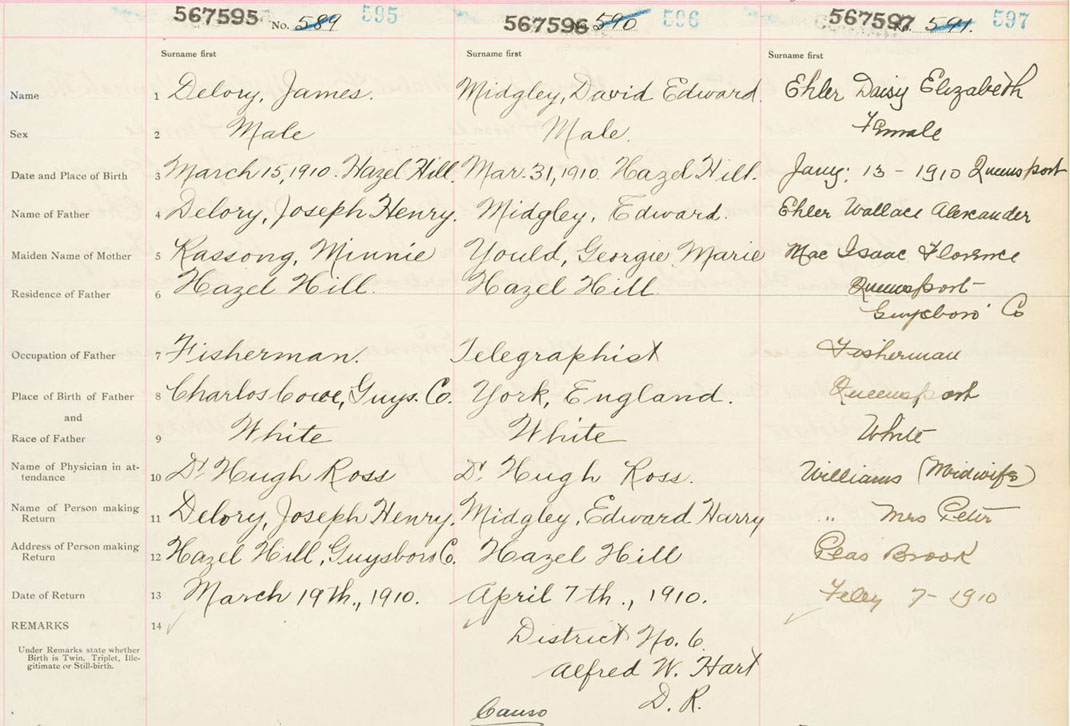 567595 No. 589 595 567596 590 596 567597 No. 591. 597
Surname first Surname first Surname first
Name 1 Delory, James. Midgley, David Edward. Ehler Daisy Elizabeth
Sex 2 Male Male. Female
Date and Place of Birth 3 March 15, 1910. Hazel Hill. Mar. 31, 1910. Hazel Hill. Jany: 13 - 1910 Queensport
Name of Father 4 Delory, Joseph Henry. Midgley, Edward. Ehler Wallace Alexander
Maiden Name of Mother 5 Rassong, Minnie Yould, Georgie Marie Mac Isaac Florence
Residence of Father 6 Hazel Hill. Hazel Hill. Queensport
Guysboro' Co
Occupation of Father 7 Fisherman. Telegraphist Fisherman
Place of Birth of Father 8 Charlos Cove, Guys. Co. York, England. Queensport
and
Race of Father 9 White White White
Name of Physician in at-
tendance 10 Dr Hugh Ross Dr. Hugh Ross. Williams (Midwife)
Name of Person making
Return 11 Delory, Joseph Henry. Midgley, Edward Harry " Mrs Peter
Address of Person making
Return 12 Hazel Hill, Guysboro Co. Hazel Hill Peas Brook
Date of Return 13 March 19th., 1910. April 7th., 1910. Feby 7 - 1910
REMARKS 14
District No. 6
Under Remarks state whether
Birth is Twin, Triplet, Ille-
gitimate or Still-birth.
Alfred W. Hart
D. R.
Canso